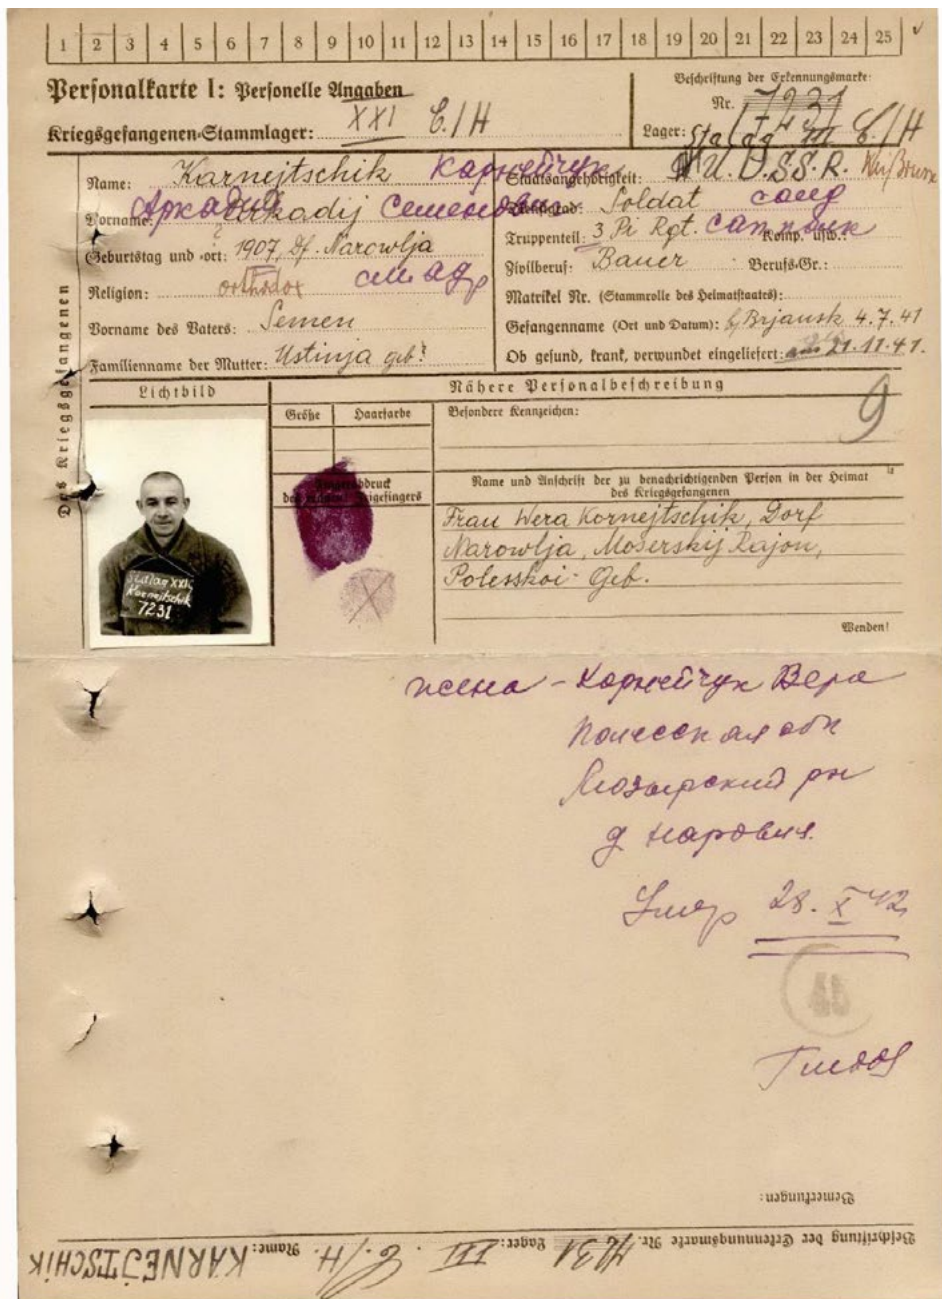 1 2 3 4 5 6 7 8 9 10 11 12 13 14 15 16 17 18 19 20 21 22 23 24 25
Personalkarte I: Personelle Angaben
Kriegsgefangenen-Stammlager: XXI C/H
Beschriftung der Erkennungsmarke:
Nr. 7231
Lager: Stalag III C/H
Des Kriegsgefangenen
Name: Karnejtschik Корнейчук
Vorname: Arkadij Аркадий Семенович
Geburtstag und -ort: 1907, Df. Narowlja
Religion: orthodox
Vorname des Vaters: Semen
Familienname der Mutter: Ustinja geb?
Staatsangehörigkeit: U.d.S.S.R.
Dienstgrad: Soldat солд
Truppenteil: 3 Pi Rgt. сап полк Komp. usw.:
Zivilberuf: Bauer Berufs-Gr.:
Matrikel Nr. (Stammrolle des Heimatstaates):
Gefangenname (Ort und Datum): b/Brjansk 4.7.41
Ob gesund, krank, verwundet eingeliefert: 21.11.41.
Lichtbild
Stalag XXI
Kornejtschik
7231
Nähere Personalbeschreibung
Größe Haarfarbe Besondere Kennzeichen:
9
Fingerabdruck
des rechten Zeigefingers
Name und Anschrift der zu benachrichtigenden Person in der Heimat
des Kriegsgefangenen
Frau Wera Kornejtschik, Dorf
Narowlja, Moserskij Rajon,
Polesskoi-Geb.
Wenden!
жена - Корнейчук Вера
Полесская обл
Мозырский рн
д Наровля.
Умер 28. X 42
Bemerkungen:
Beschriftung der Erkennungsmarke Nr. 7231 Lager: III C/H. Name: KARNEJTSCHIK